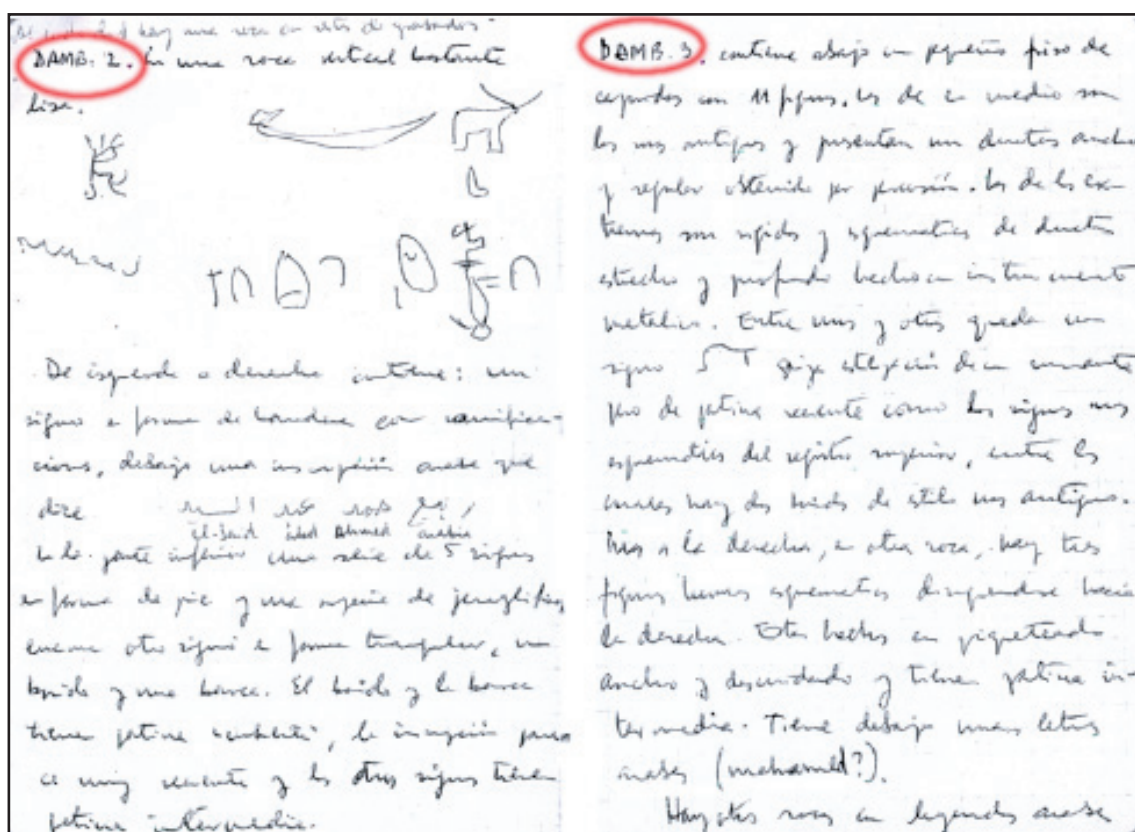 hay una roca con restos de grabados
DAMB. 2. En una roca vertical bastante
lisa.
De izquierda a derecha contiene: un
signo en forma de bandera con ramifica-
ciones, debajo una inscripción árabe que
dice
El-Said Abd Ahmed
En la parte inferior una serie de 5 signos
en forma de pie y una especie de jeroglífico,
encima otro signo en forma triangular, un
bóvido y una barca. El bóvido y la barca
tienen pátina, la inscripción
es muy reciente y los otros signos tienen
pátina intermedia.
DAMB. 3. contiene abajo un pequeño friso de
cápridos con 11 figuras. Los de en medio son
los más antiguos y presentan un ductus ancho
y regular obtenido por percusión. Los de los ex-
tremos son rígidos y esquemáticos de ductus
estrecho y profundo hecho con instrumento
metálico. Entre unos y otros queda un
signo estilización de un
pero de pátina reciente como los signos más
esquemáticos del registro superior, entre los
cuales hay dos de estilo más antiguo.
Más a la derecha, en otra roca, hay tres
figuras esquemáticas dirigiéndose hacia
la derecha. Están hechas en piqueteado
ancho y descuidado y tienen pátina in-
termedia. Tiene debajo unas letras
árabes (mohamed?).
Hay otras rocas con leyendas árabes